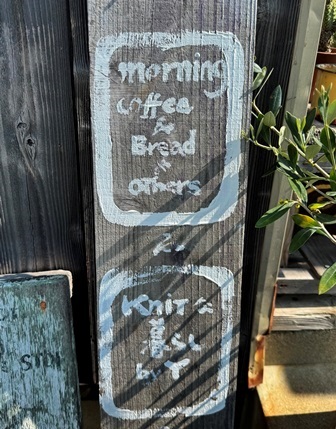 morning
coffee
&
Bread
&
others
&
Knit &
暮らし